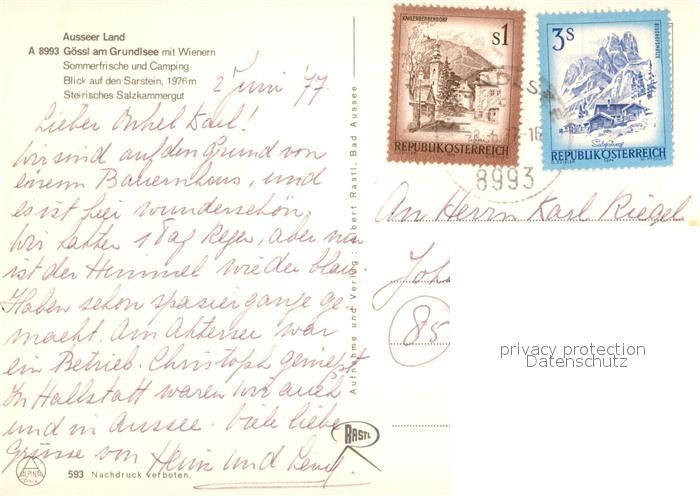 Ausseer Land
A 8993 Gössl am Grundlsee mit Wienern
Sommerfrische und Camping
Blick auf den Sarstein, 1976m
Steirisches Salzkammergut
2 Juni '77
Lieber Onkel Karl!
Wir sind auf den Grund von
einem Bauernhaus, und
es ist hier wunderschön,
wir hatten 1 Tag Regen, aber nun
ist der Himmel wieder blau.
Haben schon spaziergange ge-
macht. Am Attersee war
ein Betrieb. Christoph genießt
In Hallstatt waren wir auch
und in Aussee. Viele liebe
Grüsse von Heinz und
593 Nachdruck verboten.
ALPINA
Druck
Aufnahme und Verlag: Albert Rastl, Bad Aussee
RASTL
KAHLENBERGERDORF
S1
REPUBLIK ÖSTERREICH
3S
BISCHOFSMÜTZE
Salzburg
REPUBLIK ÖSTERREICH
8993
An Herrn Karl Riegel
Joh
85
privacy protection
Datenschutz